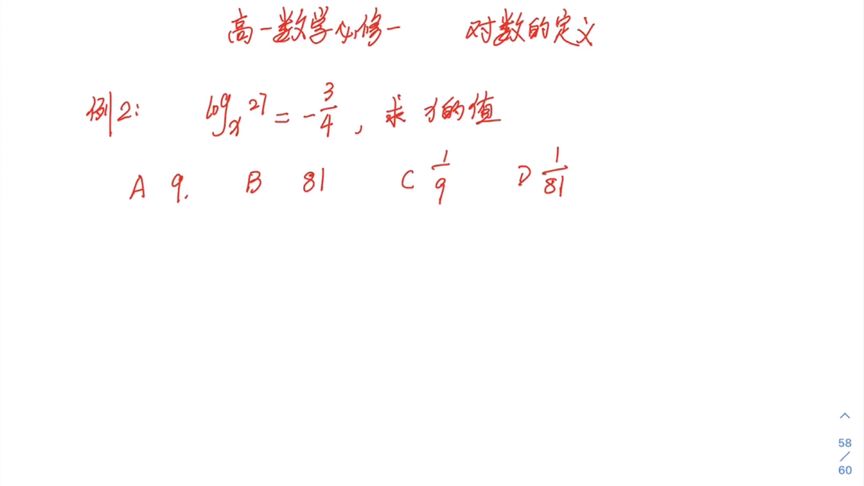 高一数学必修一 对数的定义
例2: logₓ27 = -3/4, 求x的值
A 9. B 81 C 1/9 D 1/81
58
/
60